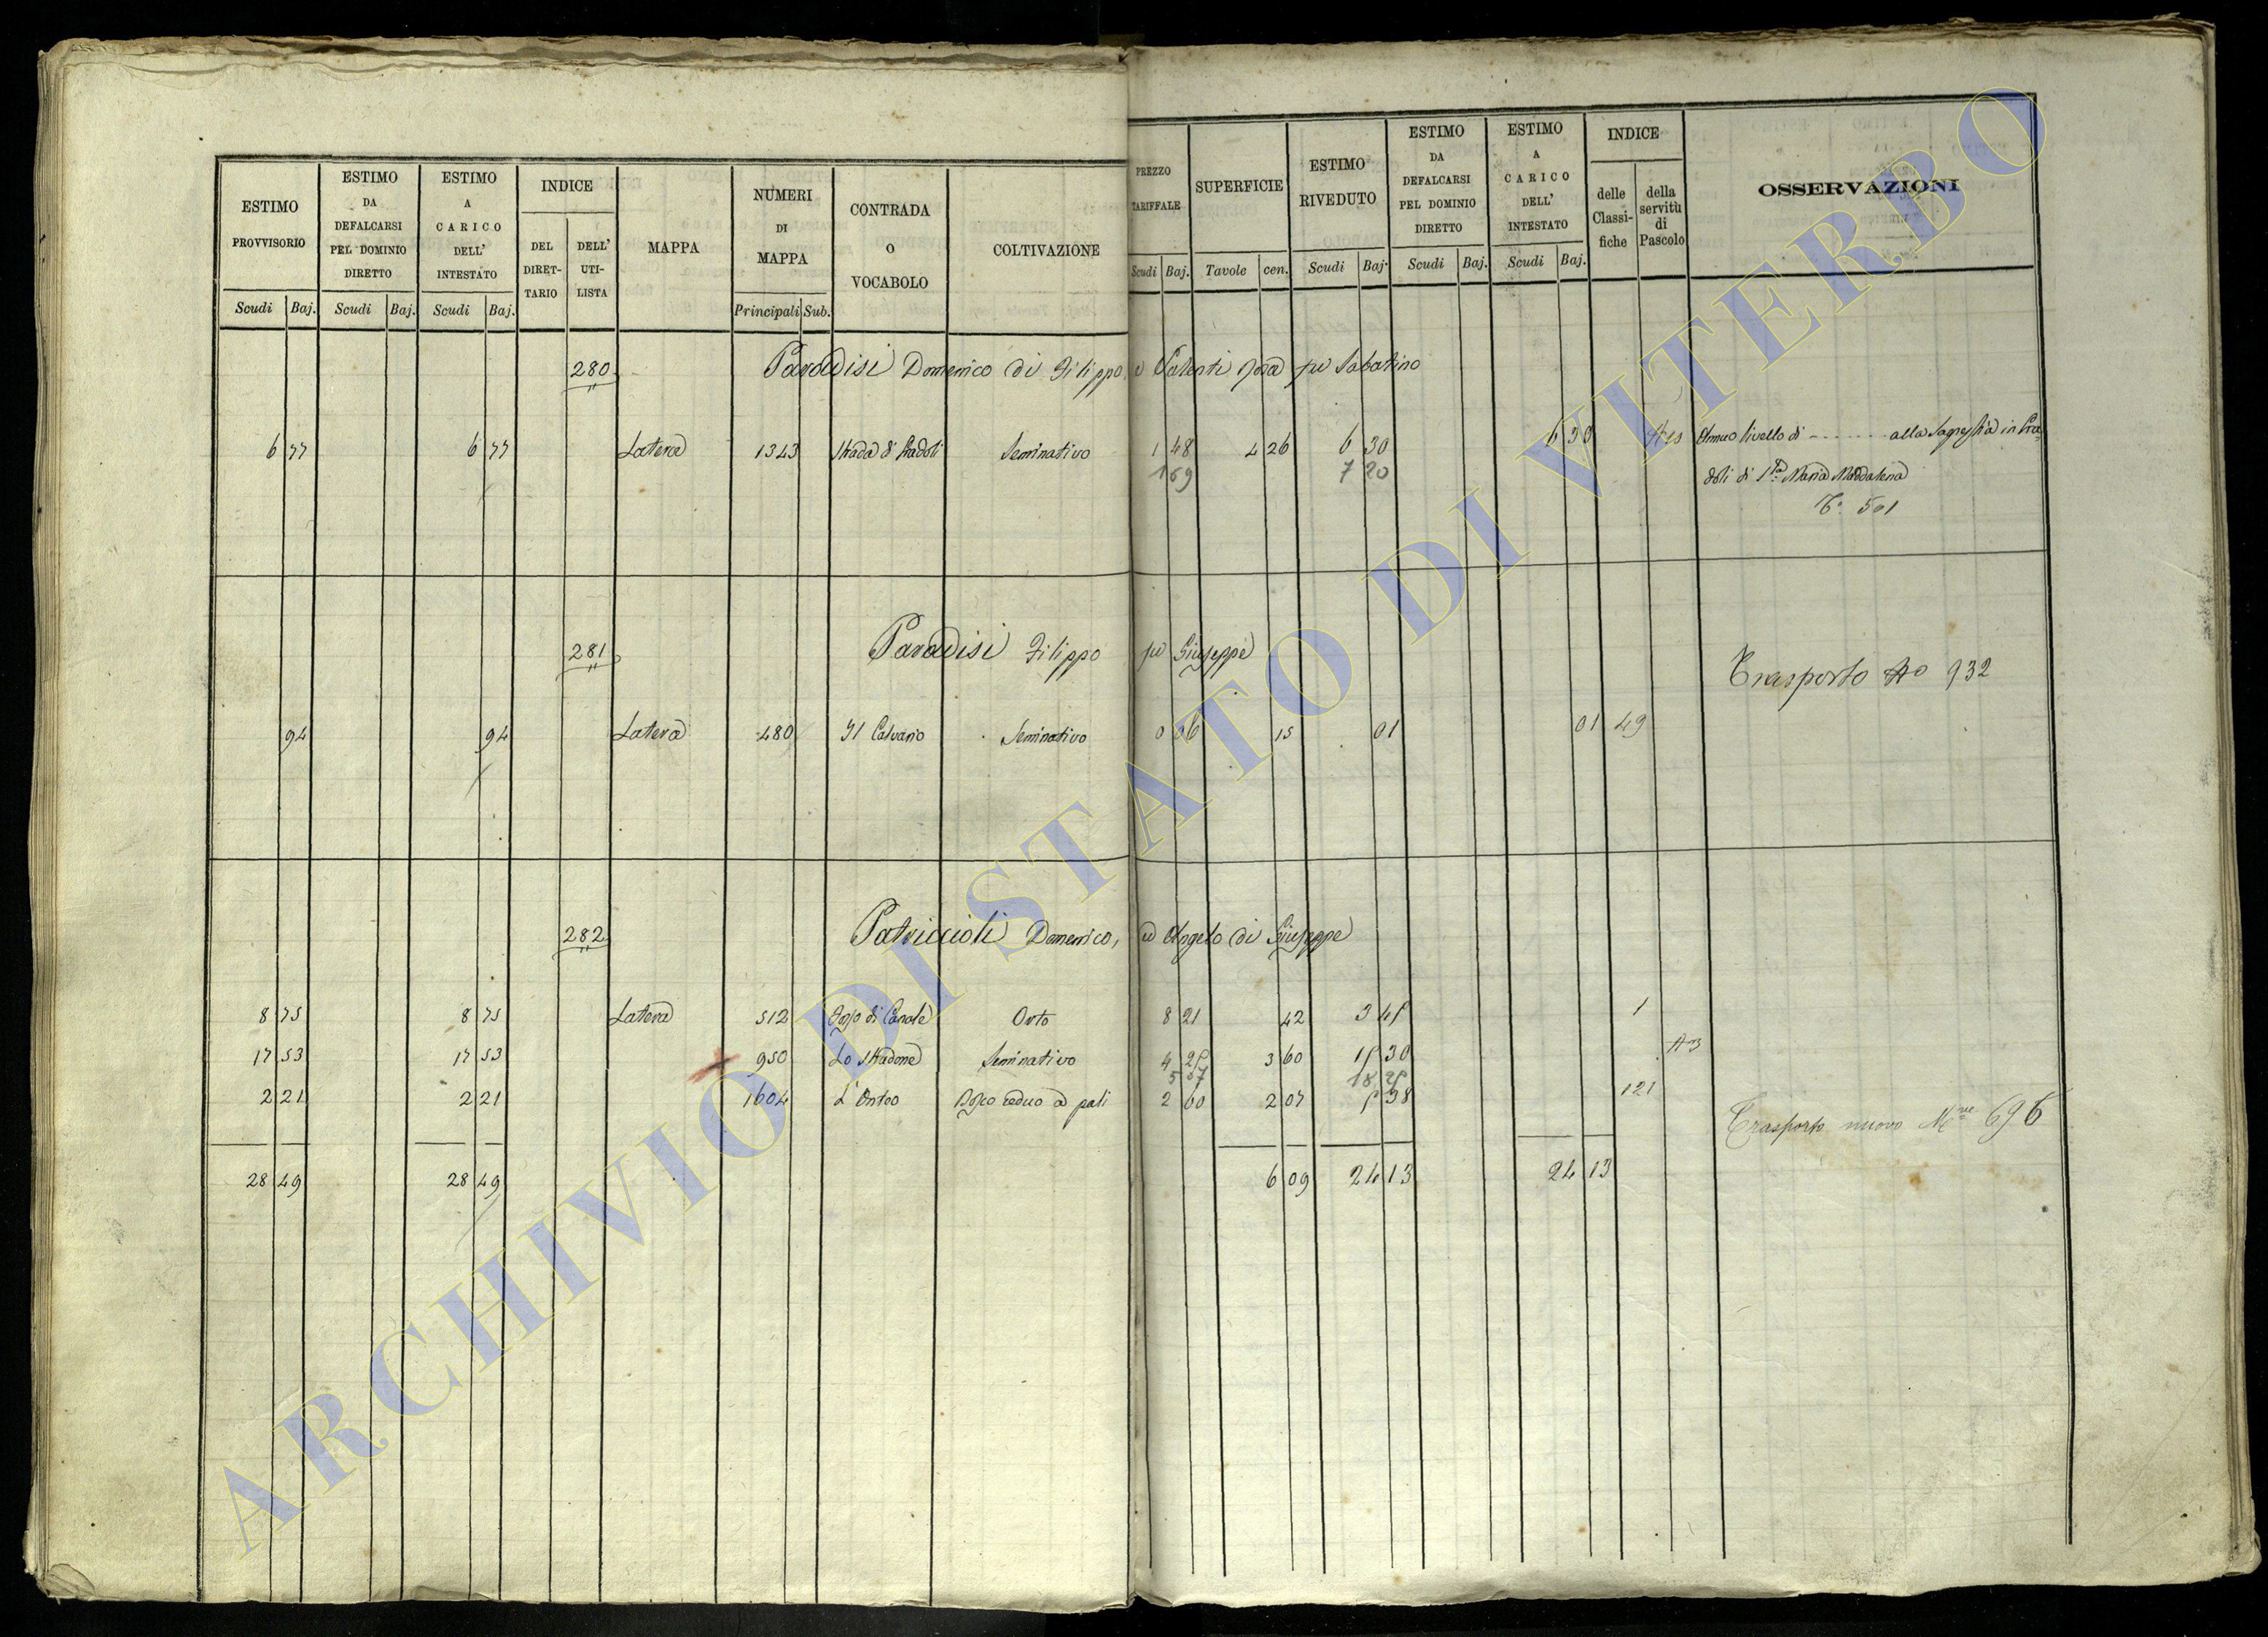 ESTIMO PROVVISORIO Scudi Baj.
ESTIMO DA DEFALCARSI PEL DOMINIO DIRETTO Scudi Baj.
ESTIMO A CARICO DELL' INTESTATO Scudi Baj.
INDICE DEL DIRET- TARIO DELL' UTI- LISTA
MAPPA
NUMERI DI MAPPA Principali Sub.
CONTRADA O VOCABOLO
COLTIVAZIONE
PREZZO TARIFFALE Scudi Baj.
SUPERFICIE Tavole cen.
ESTIMO RIVEDUTO Scudi Baj.
ESTIMO DA DEFALCARSI PEL DOMINIO DIRETTO Scudi Baj.
ESTIMO A CARICO DELL' INTESTATO Scudi Baj.
INDICE delle Classi- fiche della servitù di Pascolo
OSSERVAZIONI
280 Paradisi Domenico di Filippo, e Valenti Rosa fu Sabatino
6 77 6 77 Latera 1343 Strada di Gradoli Seminativo 1 48 4 26 6 30 6 30 Annuo livello di - - - - - - - alla Sagrestia in Gra-
1 69 7 20 doli di S.ta Maria Maddalena
501
281 Paradisi Filippo fu Giuseppe
Trasporto 932
94 94 Latera 480 Il Calvario Seminativo 0 06 15 01 01 49
282 Patriccioli Domenico, ed Angelo di Giuseppe
8 75 8 75 Latera 512 Fosso di Canale Orto 8 21 42 3 45 1
17 53 17 53 950 Lo Stradone Seminativo 4 25 3 60 15 30 A 3
5 07 18 25
2 21 2 21 1604 L' Bosco ceduo a pali 2 60 2 07 5 38 121
Trasporto nuovo 696
28 49 28 49 6 09 24 13 24 13
ARCHIVIO DI STATO DI VITERBO